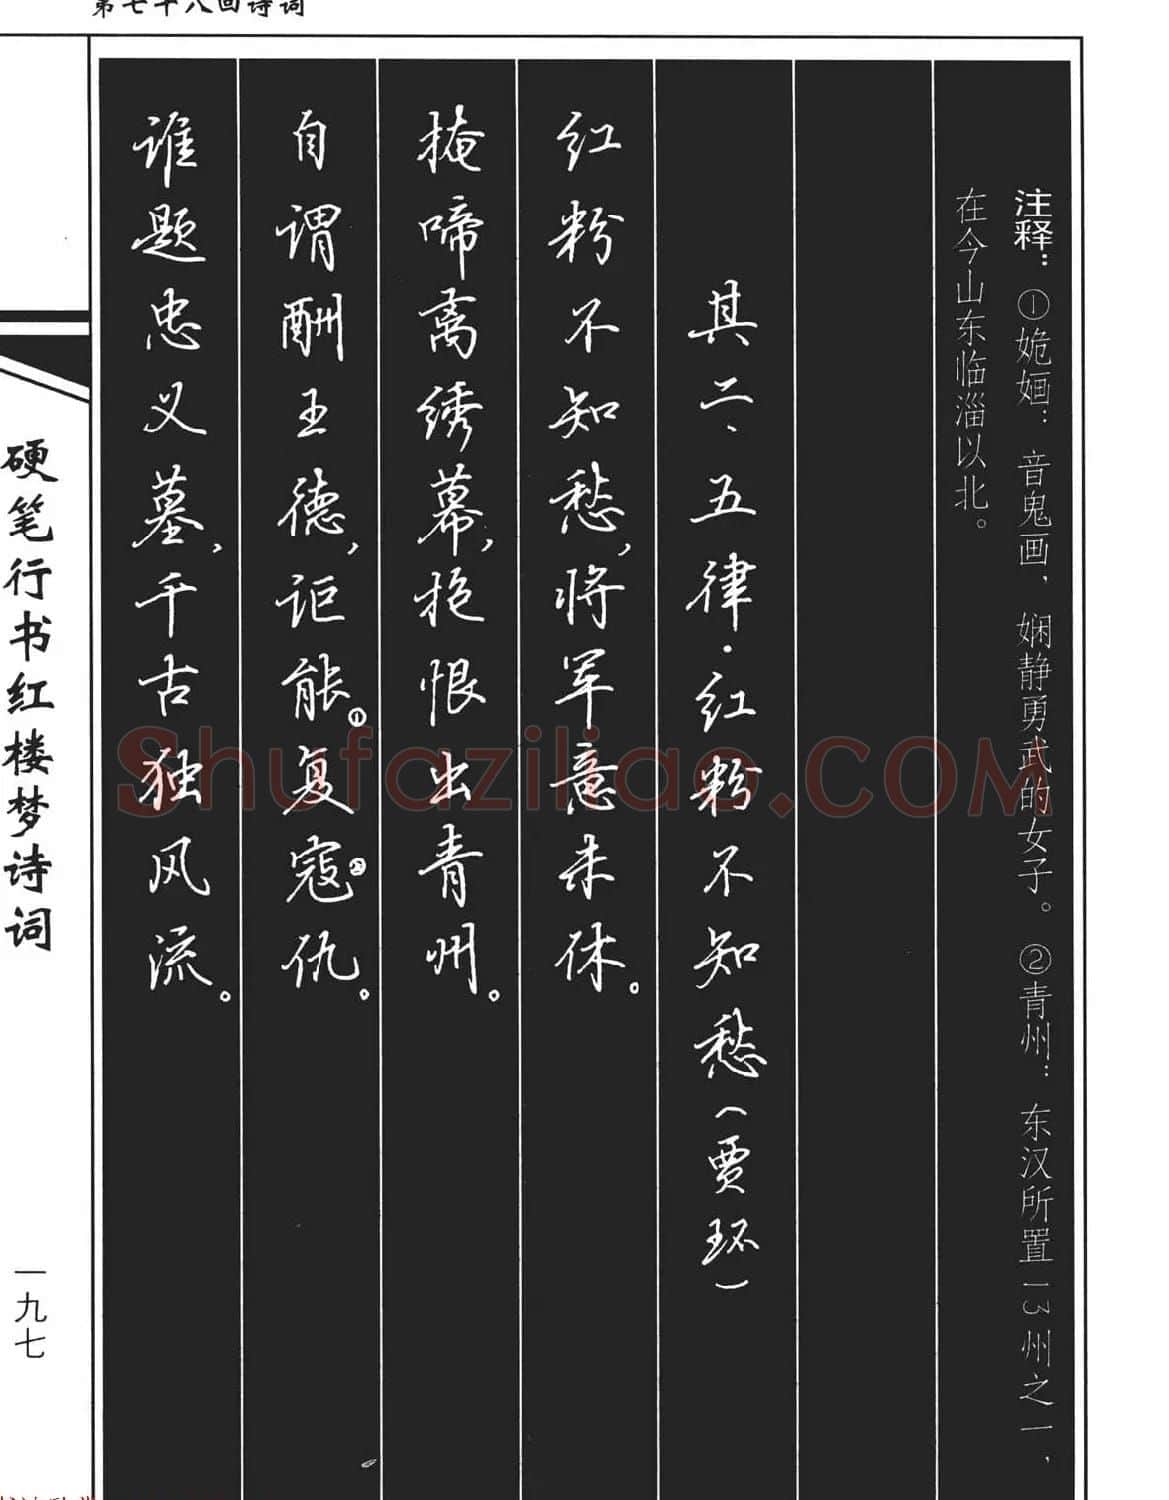 第七十八回诗词
注释：①姽婳：音鬼画，娴静勇武的女子。②青州：东汉所置13州之一，
在今山东临淄以北。
其二、五律·红粉不知愁（贾环）
红粉不知愁，将军意未休。
掩啼离绣幕，抱恨出青州。
自谓酬王德，讵能①复寇②仇。
谁题忠义墓，千古独风流。
硬笔行书红楼梦诗词
一九七
Shufaziliao.COM